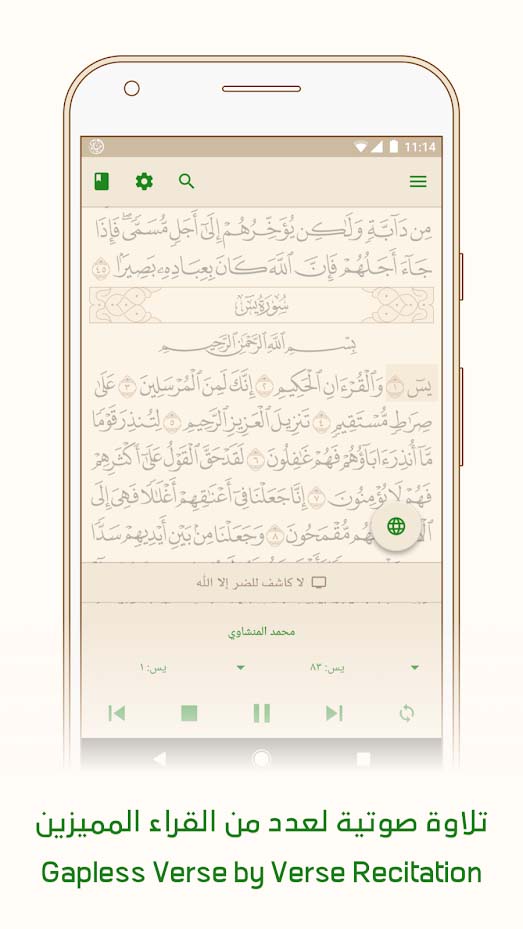 11:14
مِن دَآبَّةٍ وَلَٰكِن يُؤَخِّرُهُمْ إِلَىٰٓ أَجَلٍ مُّسَمًّى ۖ فَإِذَا
جَآءَ أَجَلُهُمْ فَإِنَّ ٱللَّهَ كَانَ بِعِبَادِهِۦ بَصِيرًۢا ٤٥
سُورَةُ يسٓ
بِسْمِ ٱللَّهِ ٱلرَّحْمَٰنِ ٱلرَّحِيمِ
يسٓ ١ وَٱلْقُرْءَانِ ٱلْحَكِيمِ ٢ إِنَّكَ لَمِنَ ٱلْمُرْسَلِينَ ٣ عَلَىٰ
صِرَٰطٍ مُّسْتَقِيمٍ ٤ تَنزِيلَ ٱلْعَزِيزِ ٱلرَّحِيمِ ٥ لِتُنذِرَ قَوْمًا
مَّآ أُنذِرَ ءَابَآؤُهُمْ فَهُمْ غَٰفِلُونَ ٦ لَقَدْ حَقَّ ٱلْقَوْلُ عَلَىٰٓ أَكْثَرِهِمْ
فَهُمْ لَا يُؤْمِنُونَ ٧ إِنَّا جَعَلْنَا فِىٓ أَعْنَٰقِهِمْ أَغْلَٰلًا فَهِىَ إِلَى
مُّقْمَحُونَ ٨ وَجَعَلْنَا مِنۢ بَيْنِ أَيْدِيهِمْ سَدًّا
لا كاشف للضر إلا الله
محمد المنشاوي
يس: ٨٣ يس: ١
تلاوة صوتية لعدد من القراء المميزين
Gapless Verse by Verse Recitation